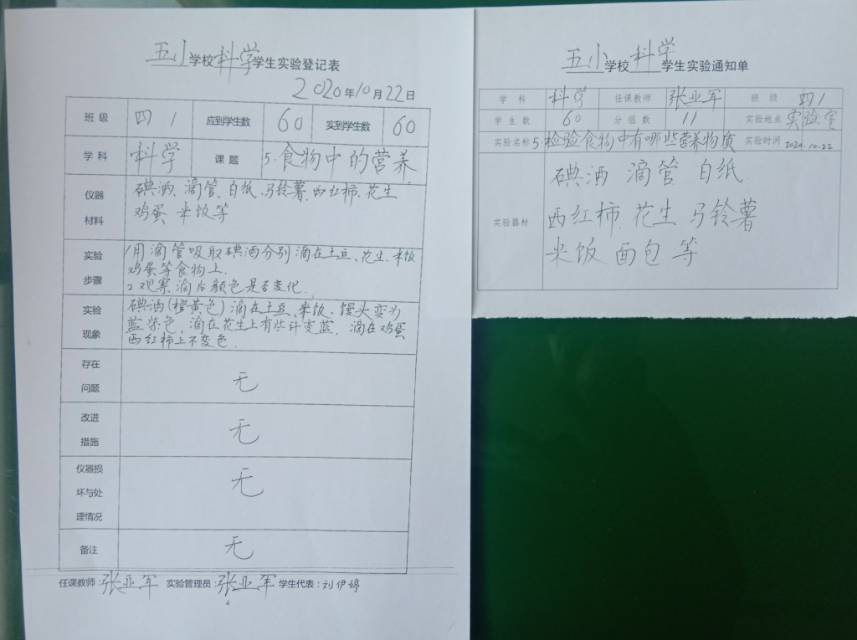 五小学校科学学生实验登记表
2020年10月22日
班级 四1 应到学生数 60 实到学生数 60
学科 科学 课题 5.食物中的营养
仪器材料 碘酒、滴管、白纸、马铃薯、西红柿、花生
鸡蛋 米饭等
实验步骤 1用滴管吸取碘酒分别滴在土豆、花生、米饭
鸡蛋等食物上.
2.观察滴后颜色是否变化.
实验现象 碘酒(橙黄色)滴在土豆、米饭、馒头变为
蓝紫色,滴在花生上有些许变蓝.滴在鸡蛋
西红柿上不变色.
存在问题 无
改进措施 无
仪器损坏与处理情况 无
备注 无
任课教师:张亚军 实验管理员:张亚军 学生代表:刘伊婷
五小学校科学学生实验通知单
学科 科学 任课教师 张亚军 班级 四1
学生数 60 分组数 11 实验地点 实验室
实验名称 5.检验食物中有哪些营养物质 实验时间 2020.10.22
实验器材 碘酒 滴管 白纸
西红柿 花生 马铃薯
米饭 面包 等